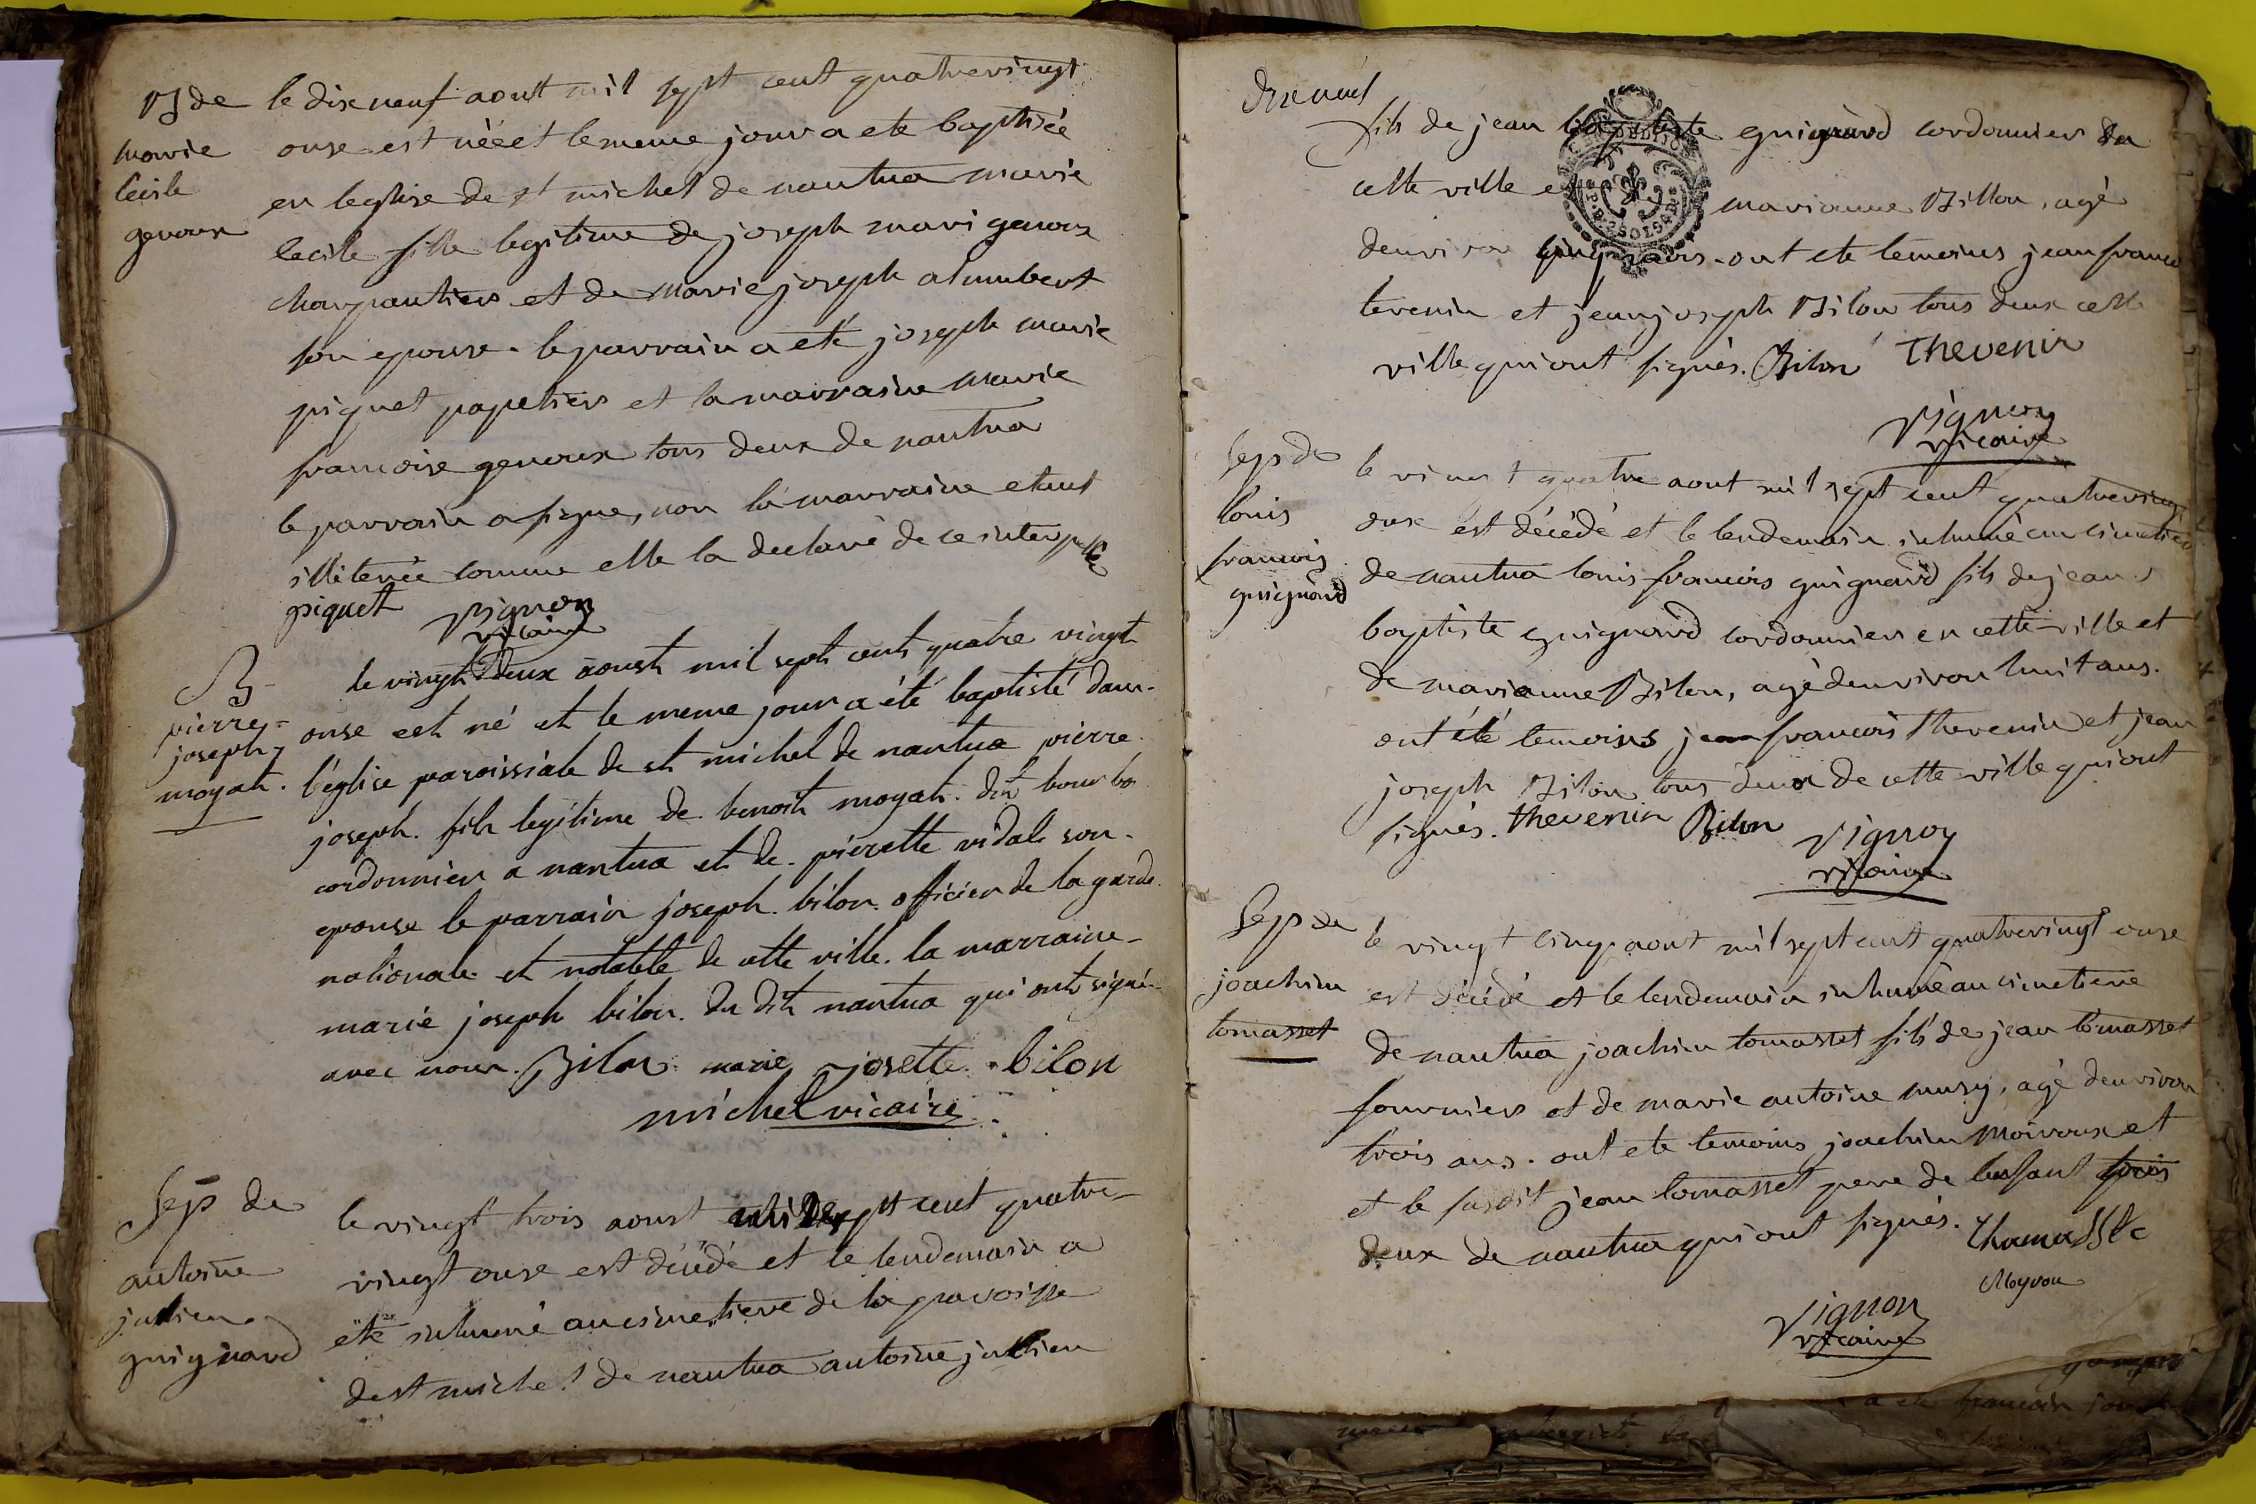 B de
marie
cecile
genoux
le dix neuf aoust mil sept cent quatrevingt
onse est née et le meme jour a ete baptisée
en leglise de st michel de nantua marie
cecile fille legitime de joseph mari genoux
charpantiers et de marie joseph alumbert
son epouse. le parrain a eté joseph marie
piquet papetiers et la marraine marie
francoise genoux tous deux de nantua
le parrain a signe, non la marraine etant
illiterée comme elle la declaré de ce interpellée
piquet Vignon
vicaire
B
pierre=
joseph
moyat.
le vingt deux aoust mil sept cent quatre vingt
onse est né et le meme jour a été baptisté dans
l'église paroissiale de st michel de nantua pierre
joseph. fils legitime de benoit moyat. dit bourbo
cordonnier a nantua et de. pierette vidal. son.
epouse le parrain joseph. bilon. officier de la garde
nationale et notable de cette ville. la marraine
marie joseph bilon. du dit nantua qui ont signé
avec nous. Bilon. marie josette bilon
michel vicaire
Sep de
antoine
jullien
guignard
le vingt trois aoust mil sept cent quatre-
vingt onse est décédé et le lendemain a
eté inhumé au cimetiere de la paroisse
de st michel de nantua antoine jullien
fils de jean baptiste guignard cordonniers de
cette ville et marianne Billon, agé
denviron cinq mois. ont ete temoins jean franco
tevenin et jean joseph Bilon tous deux cette
ville qui ont signés. Bilon Thevenin
Vignon
vicaire
Sep de
louis
francois
guignard
le vingt quatre aout mil sept cent quatrevingt
onse est décédé et le lendemain inhumé au cimetiere
de nantua louis francois guignard fils de jean
baptiste guignard cordonniers en cette ville et
de marianne Bilon, agé denviron huit ans.
ont été temoins jean francois thevenin et jean
joseph Bilon tous deux de cette ville qui ont
signés. thevenin Bilon Vignon
vicaire
Sep de
joachim
tomasset
le vingt cinq aout mil sept cent quatrevingt onse
est décédé et le lendemain inhumé au cimetiere
de nantua joachim tomasset fils de jean tomasset
fourniers et de marie antoine musy, agé denviron
trois ans. ont ete temoins joachim moivoux et
et le susdit jean tomasset pere de lenfant
deux de nantua qui ont signés.
Moyvou
Vignon
vicaire